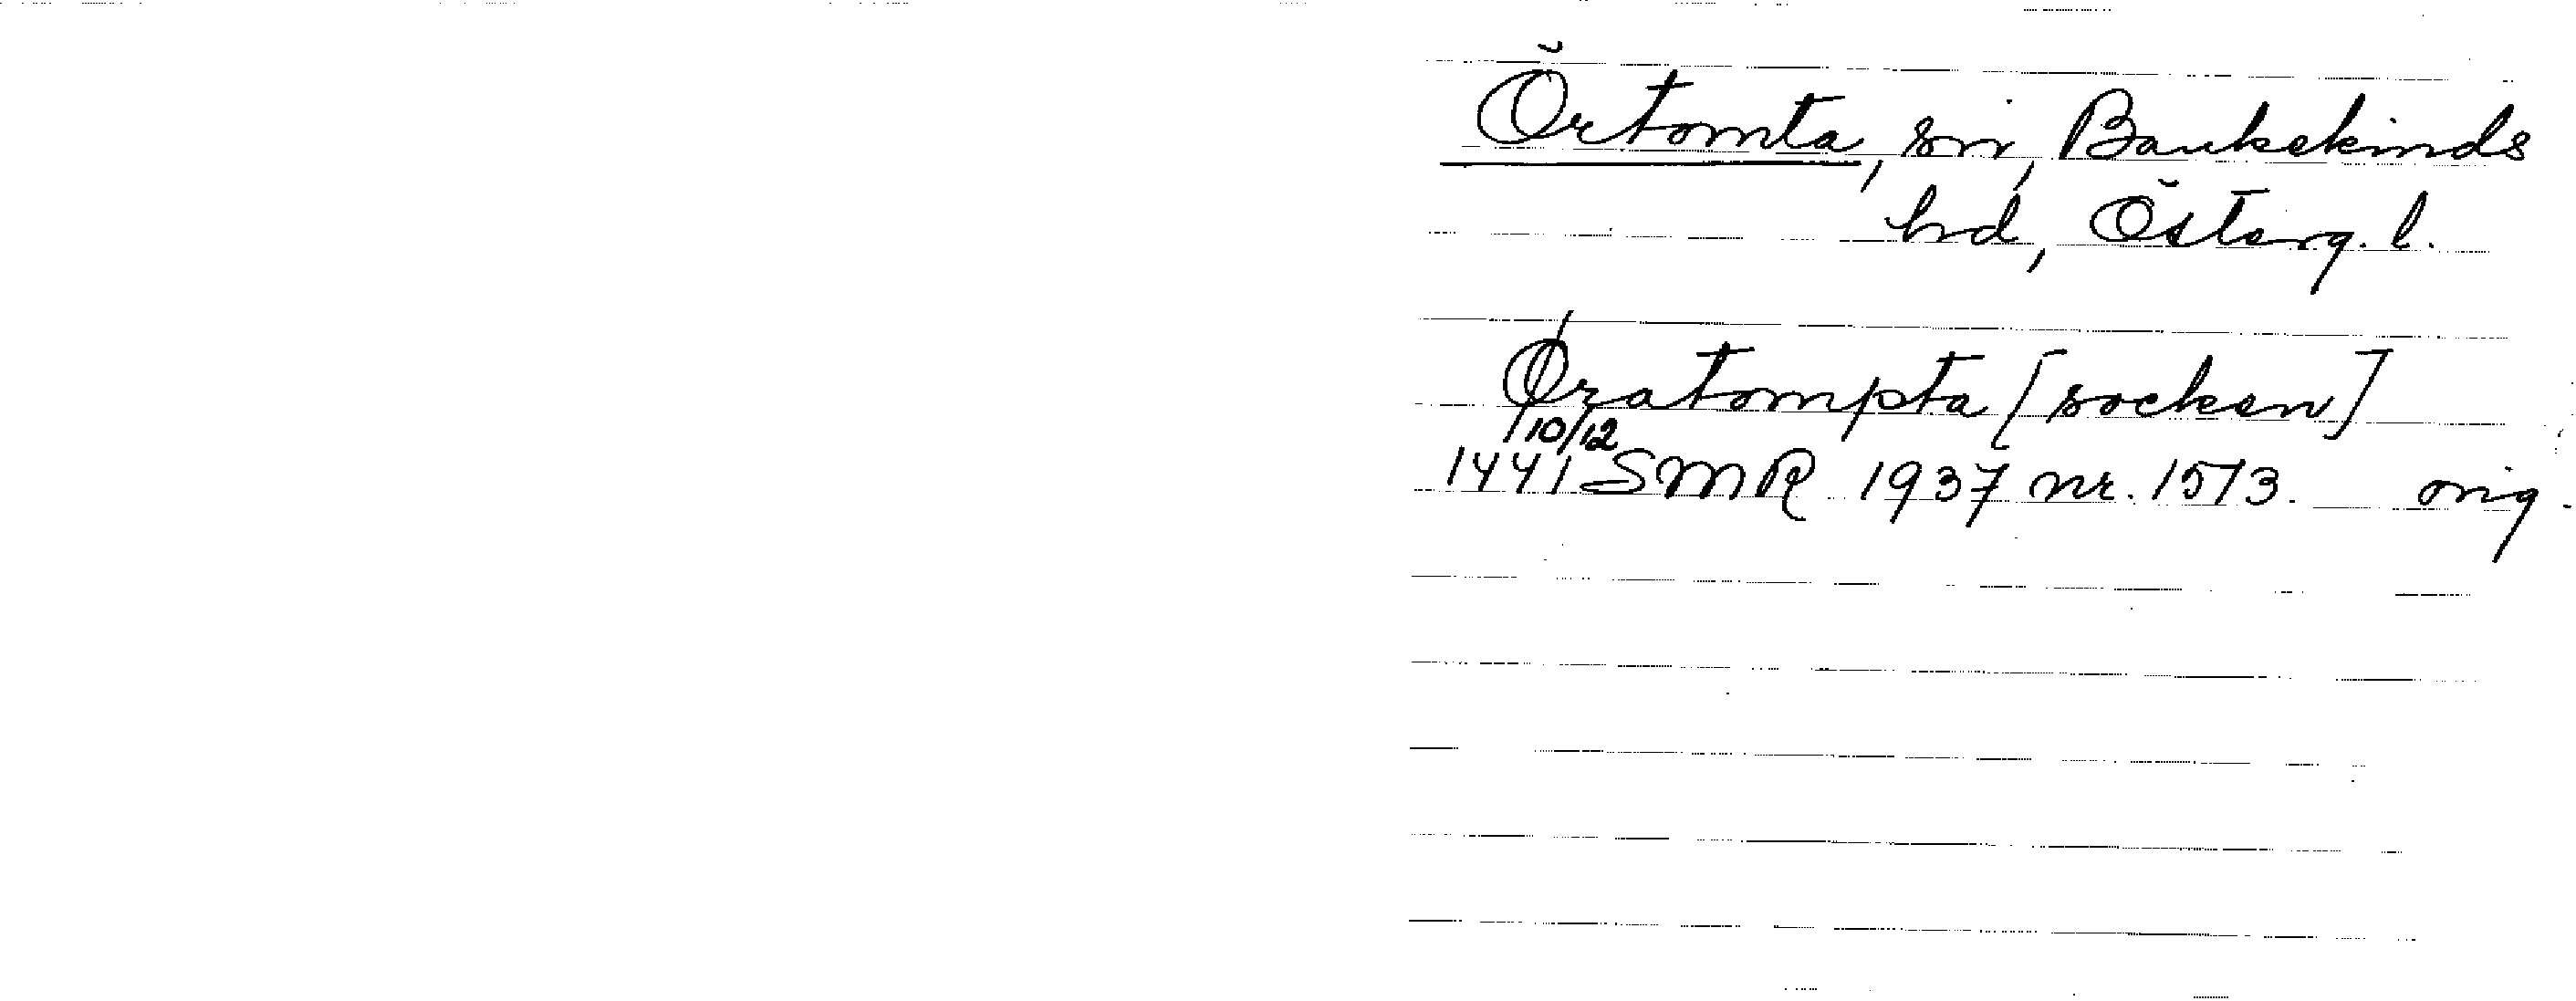 Örtomta, sn, Bankekinds
hd, Österg. l.
Øratompta [socken]
1441 10/12 SMR 1937 nr. 1573. orig.